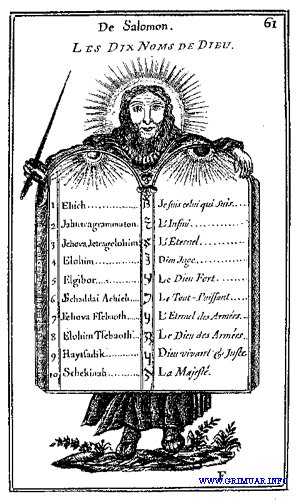 De Salomon. 61
LES DIX NOMS DE DIEU.
1 Ehieh............ Je suis celui qui suis....
2 L'Infini...........
3 L'Eternel..........
4 Elohim............ Dieu Juge.........
5 Elgibor............ Le Dieu Fort.......
6 Le Tout-Puissant......
7 Jehova L'Eternel des Armées..
8 Elohim Le Dieu des Armées..
9 Dieu vivant & Juste.
10 Schekinah......... La Majesté.
F
WWW.GRIMUAR.INFO